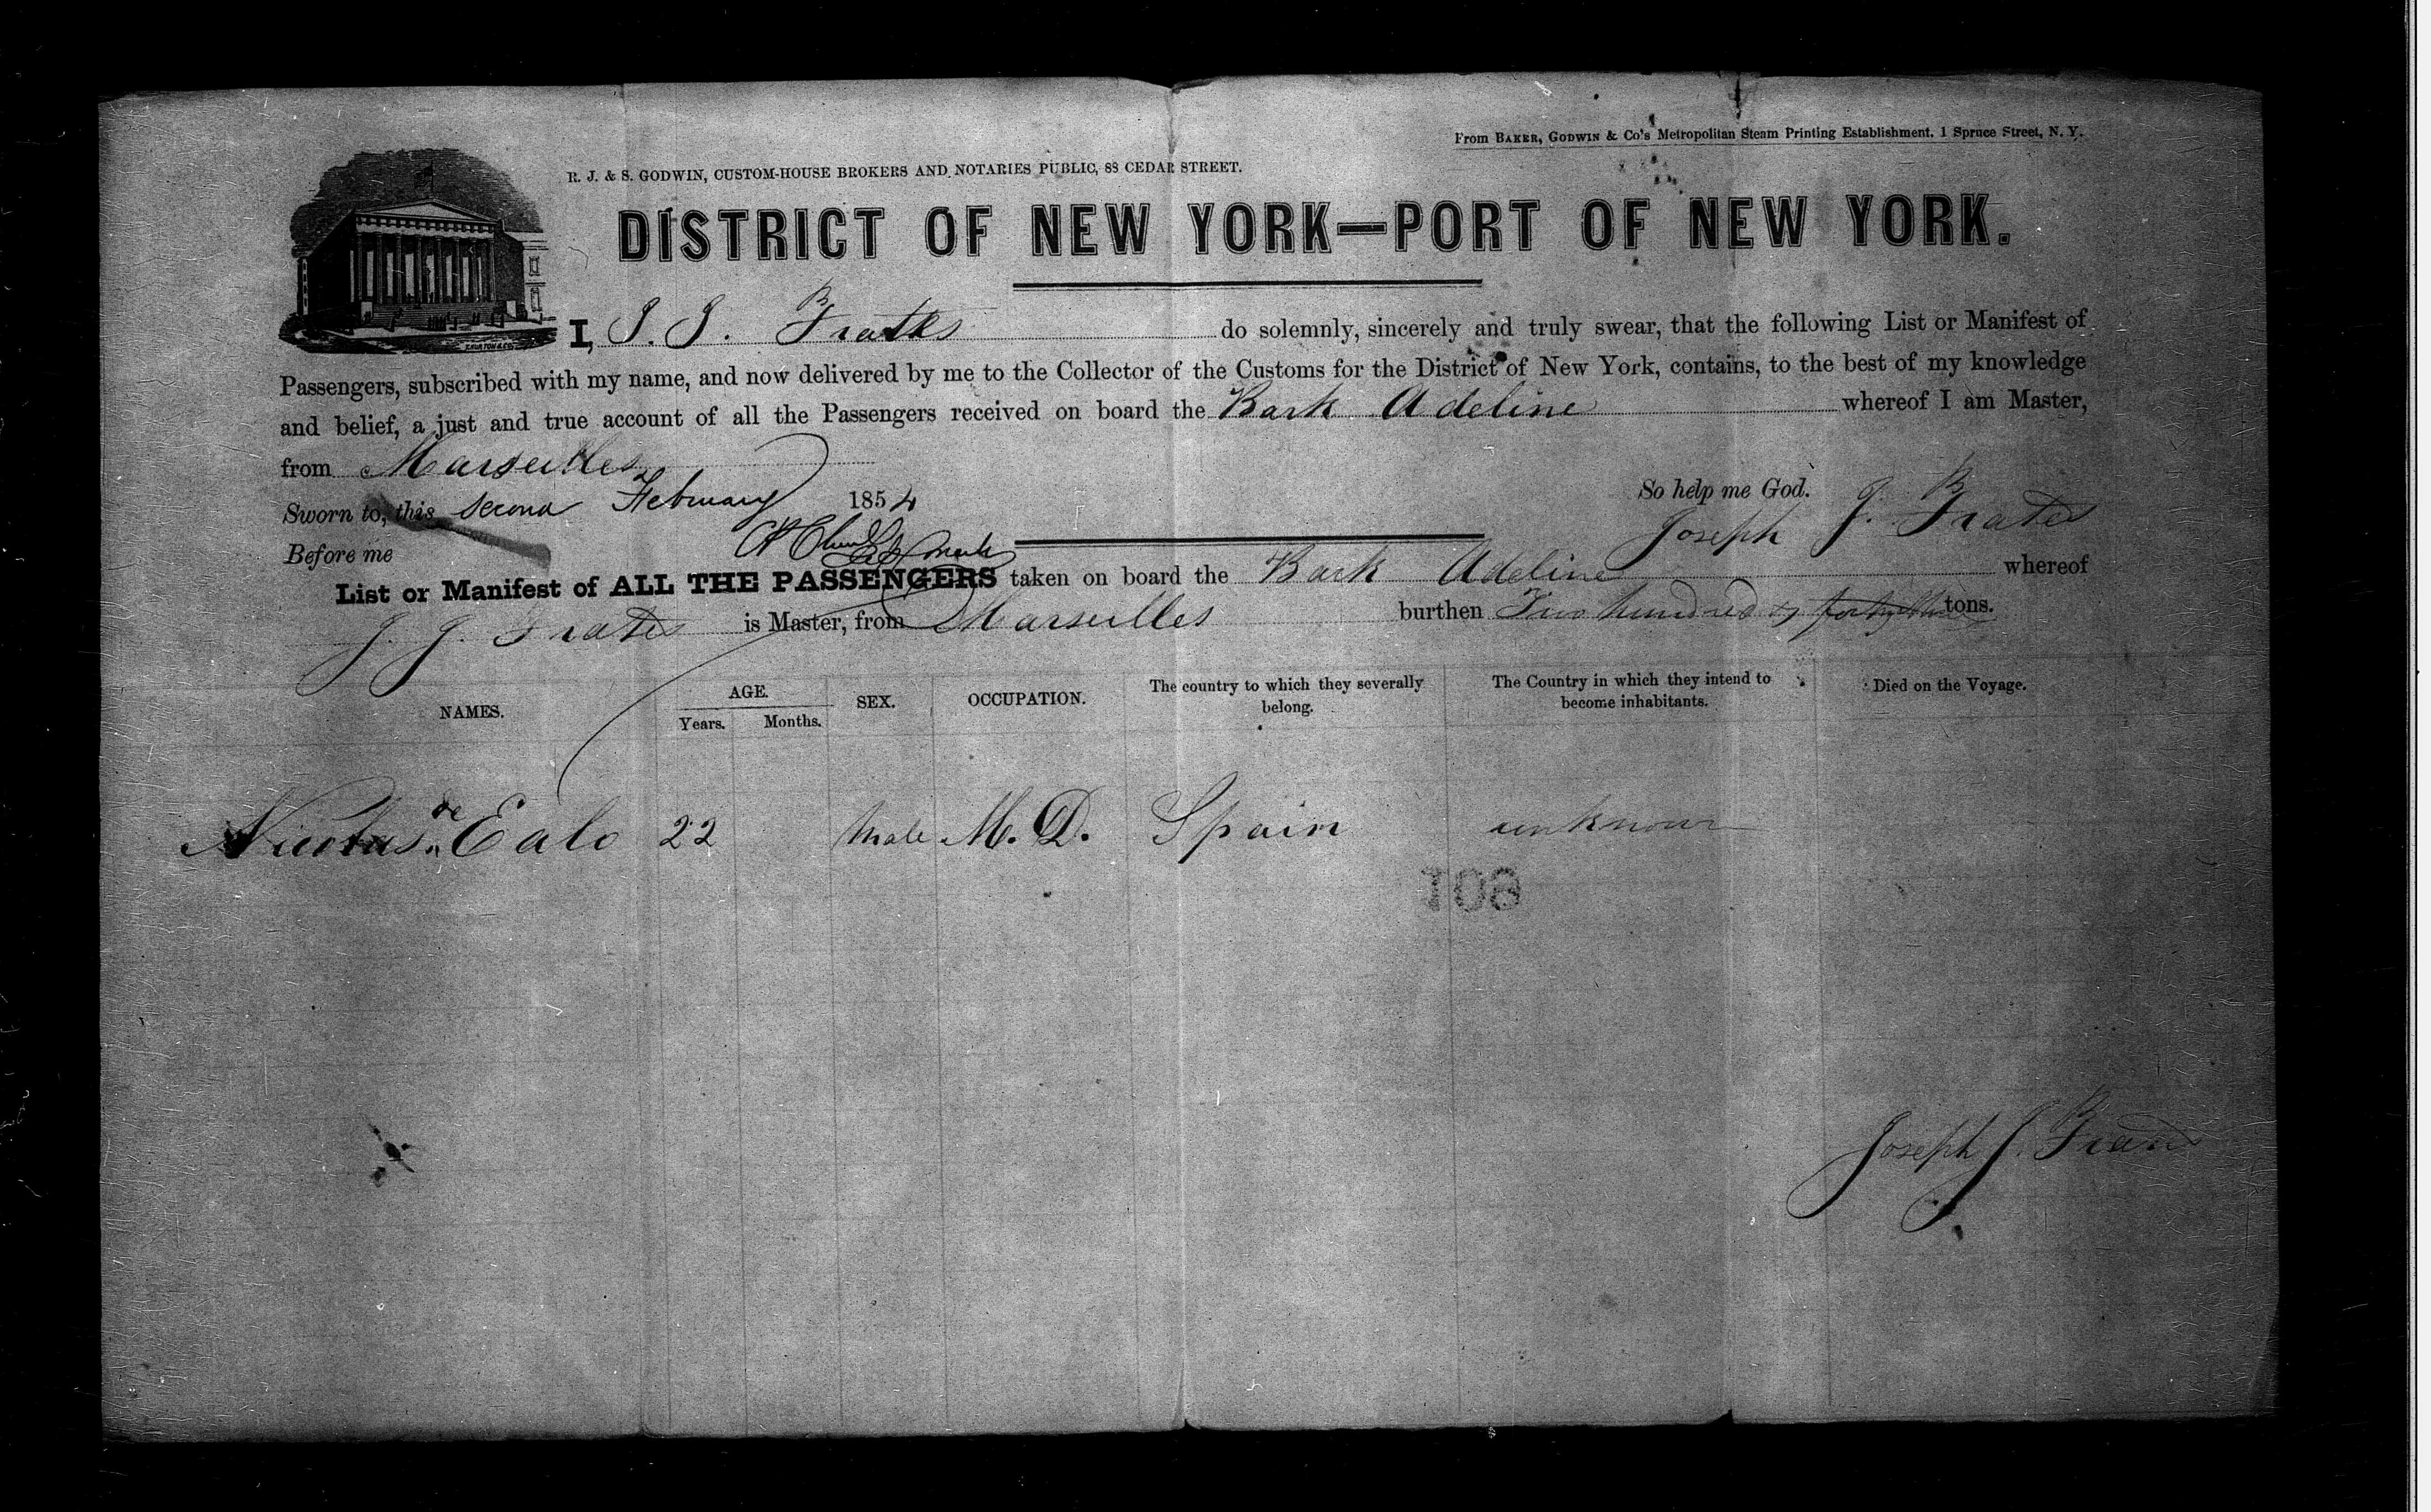 From BAKER, GODWIN & Co's Metropolitan Steam Printing Establishment, 1 Spruce Street, N. Y.
R. J. & S. GODWIN, CUSTOM-HOUSE BROKERS AND NOTARIES PUBLIC, 88 CEDAR STREET.
DISTRICT OF NEW YORK—PORT OF NEW YORK.
I, J. J. Frates do solemnly, sincerely and truly swear, that the following List or Manifest of
Passengers, subscribed with my name, and now delivered by me to the Collector of the Customs for the District of New York, contains, to the best of my knowledge
and belief, a just and true account of all the Passengers received on board the Bark Adeline whereof I am Master,
from Marseilles
So help me God.
Sworn to, this second February 1854
Joseph J. Frates
Before me
List or Manifest of ALL THE PASSENGERS taken on board the Bark Adeline whereof
J. J. Frates is Master, from Marseilles burthen Two hundred & tons.
NAMES. AGE. Years. Months. SEX. OCCUPATION. The country to which they severally belong. The Country in which they intend to become inhabitants. Died on the Voyage.
Nicolas de Ealo 22 Male M. D. Spain unknown
108
Joseph J. Frates